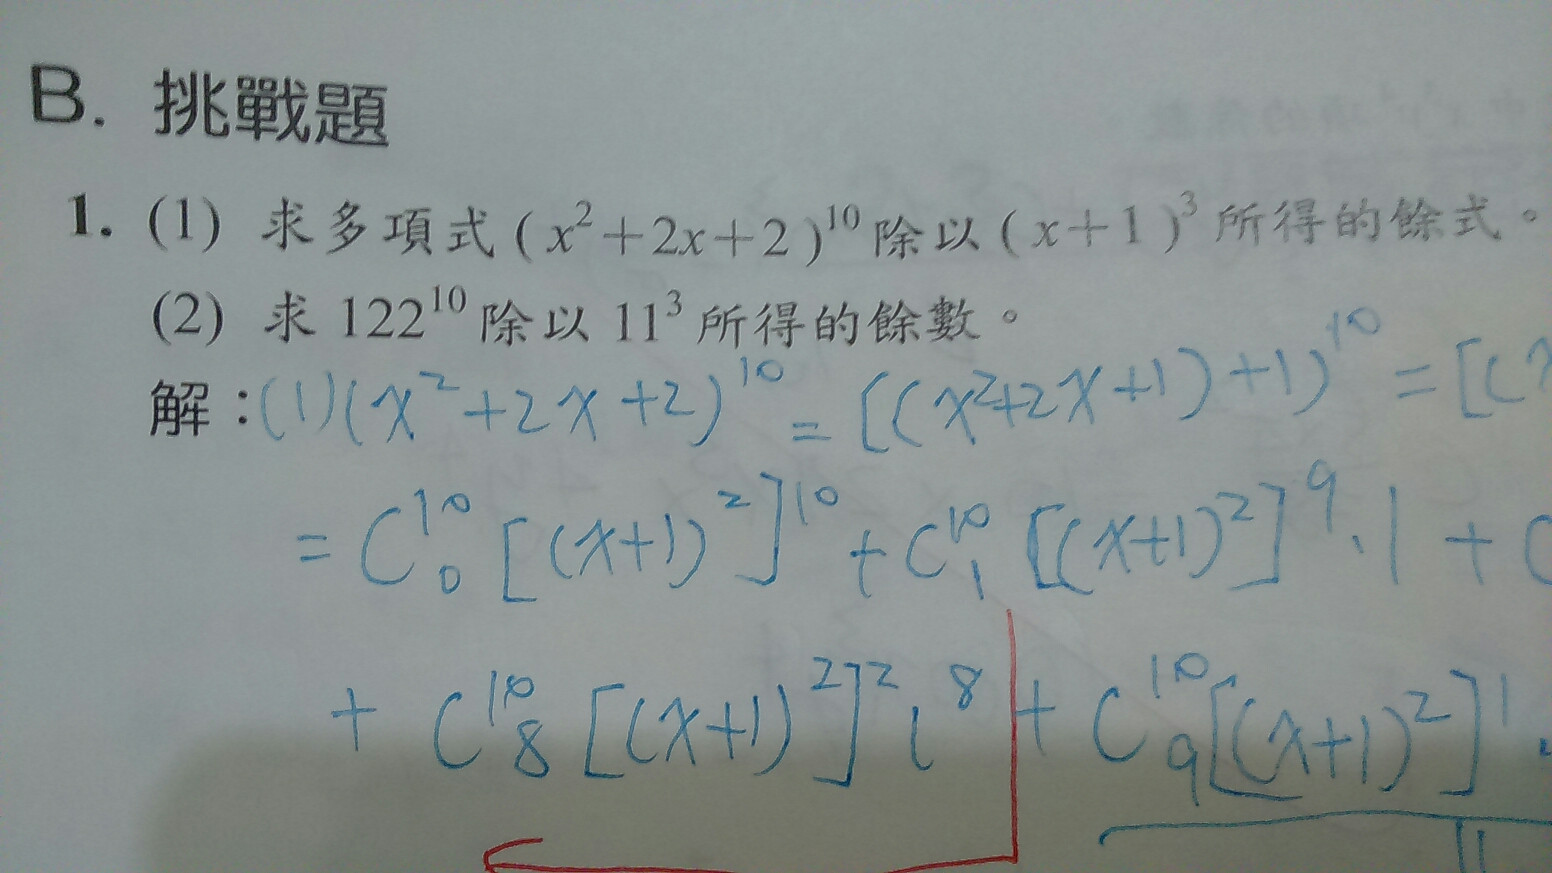 B. 挑戰題
1. (1) 求多項式(x²+2x+2)¹⁰除以(x+1)³所得的餘式。
(2) 求 122¹⁰除以 11³所得的餘數。
解:(1)(x²+2x+2)¹⁰ = [(x²+2x+1)+1)¹⁰ = [(
= C¹⁰₀[(x+1)²]¹⁰ + C¹⁰₁[(x+1)²]⁹·1 + C
+ C¹⁰₈[(x+1)²]²1⁸ + C¹⁰₉[(x+1)²]¹·